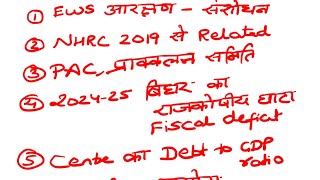 ① EWS आरक्षण - संशोधन
② NHRC 2019 से Related
③ PAC, प्राक्कलन समिति
④ 2024-25 बिहार का
राजकोषीय घाटा
Fiscal deficit
⑤ Centre का Debt to GDP
ratio